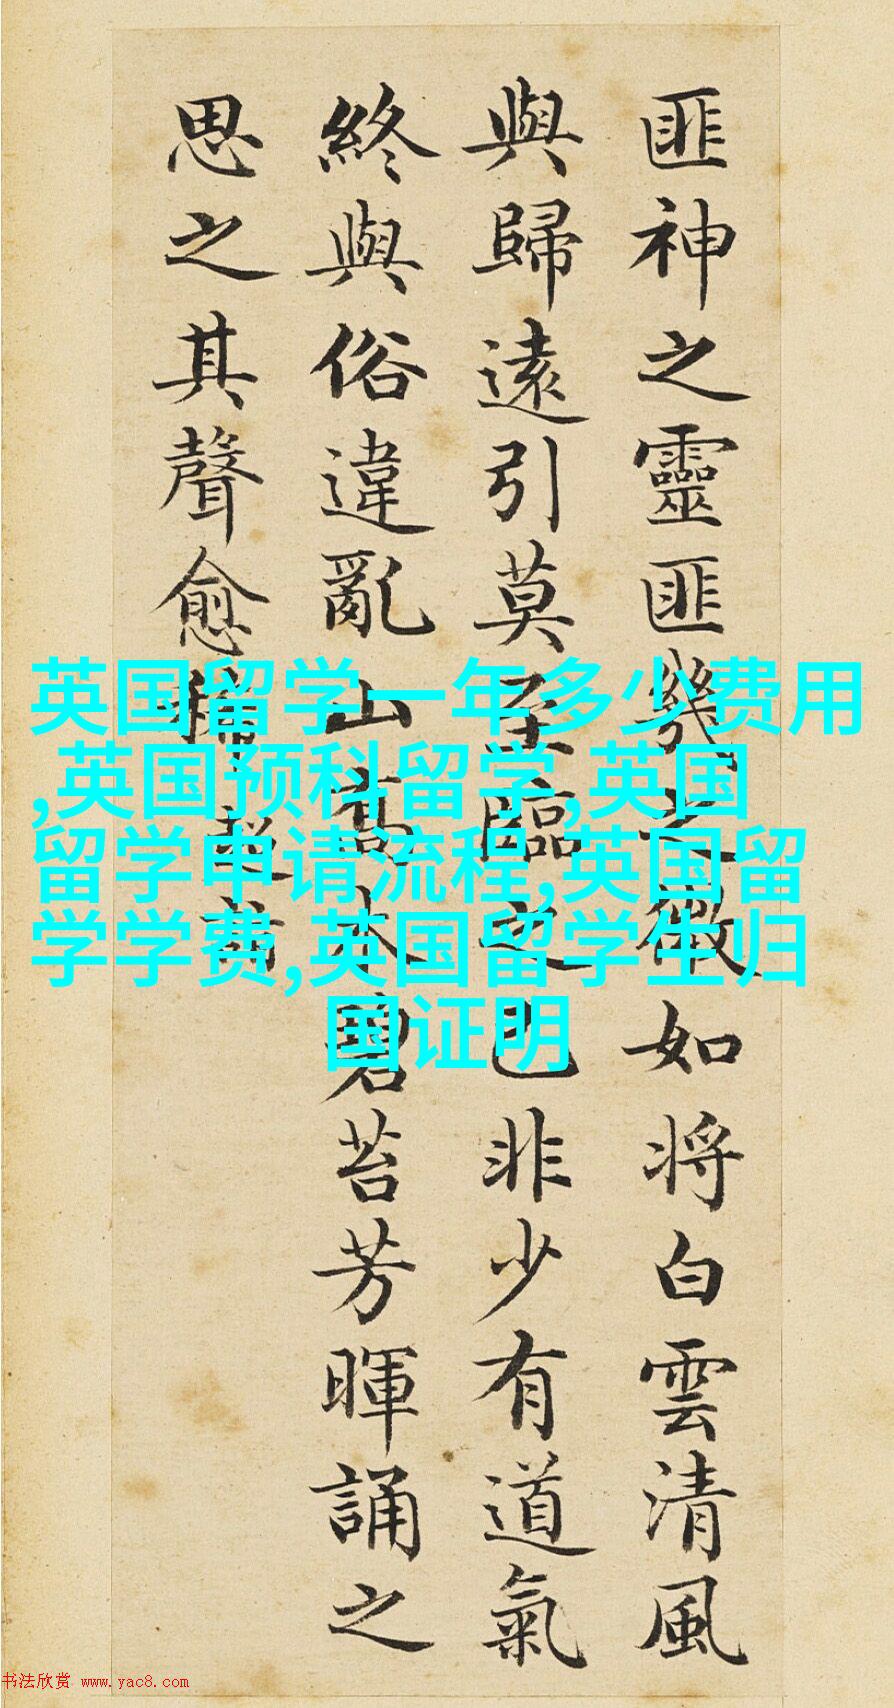 匪神之靈匪幾之微如將白雲清風
與歸遠引莫至臨之已非少有道氣
終與俗違亂山高木碧苔芳暉誦之
思之其聲愈稀 超詣
英国留学一年多少费用
,英国预科留学,英国
留学申请流程,英国留
学学费,英国留学生归
国证明
书法欣赏 www.yac8.com